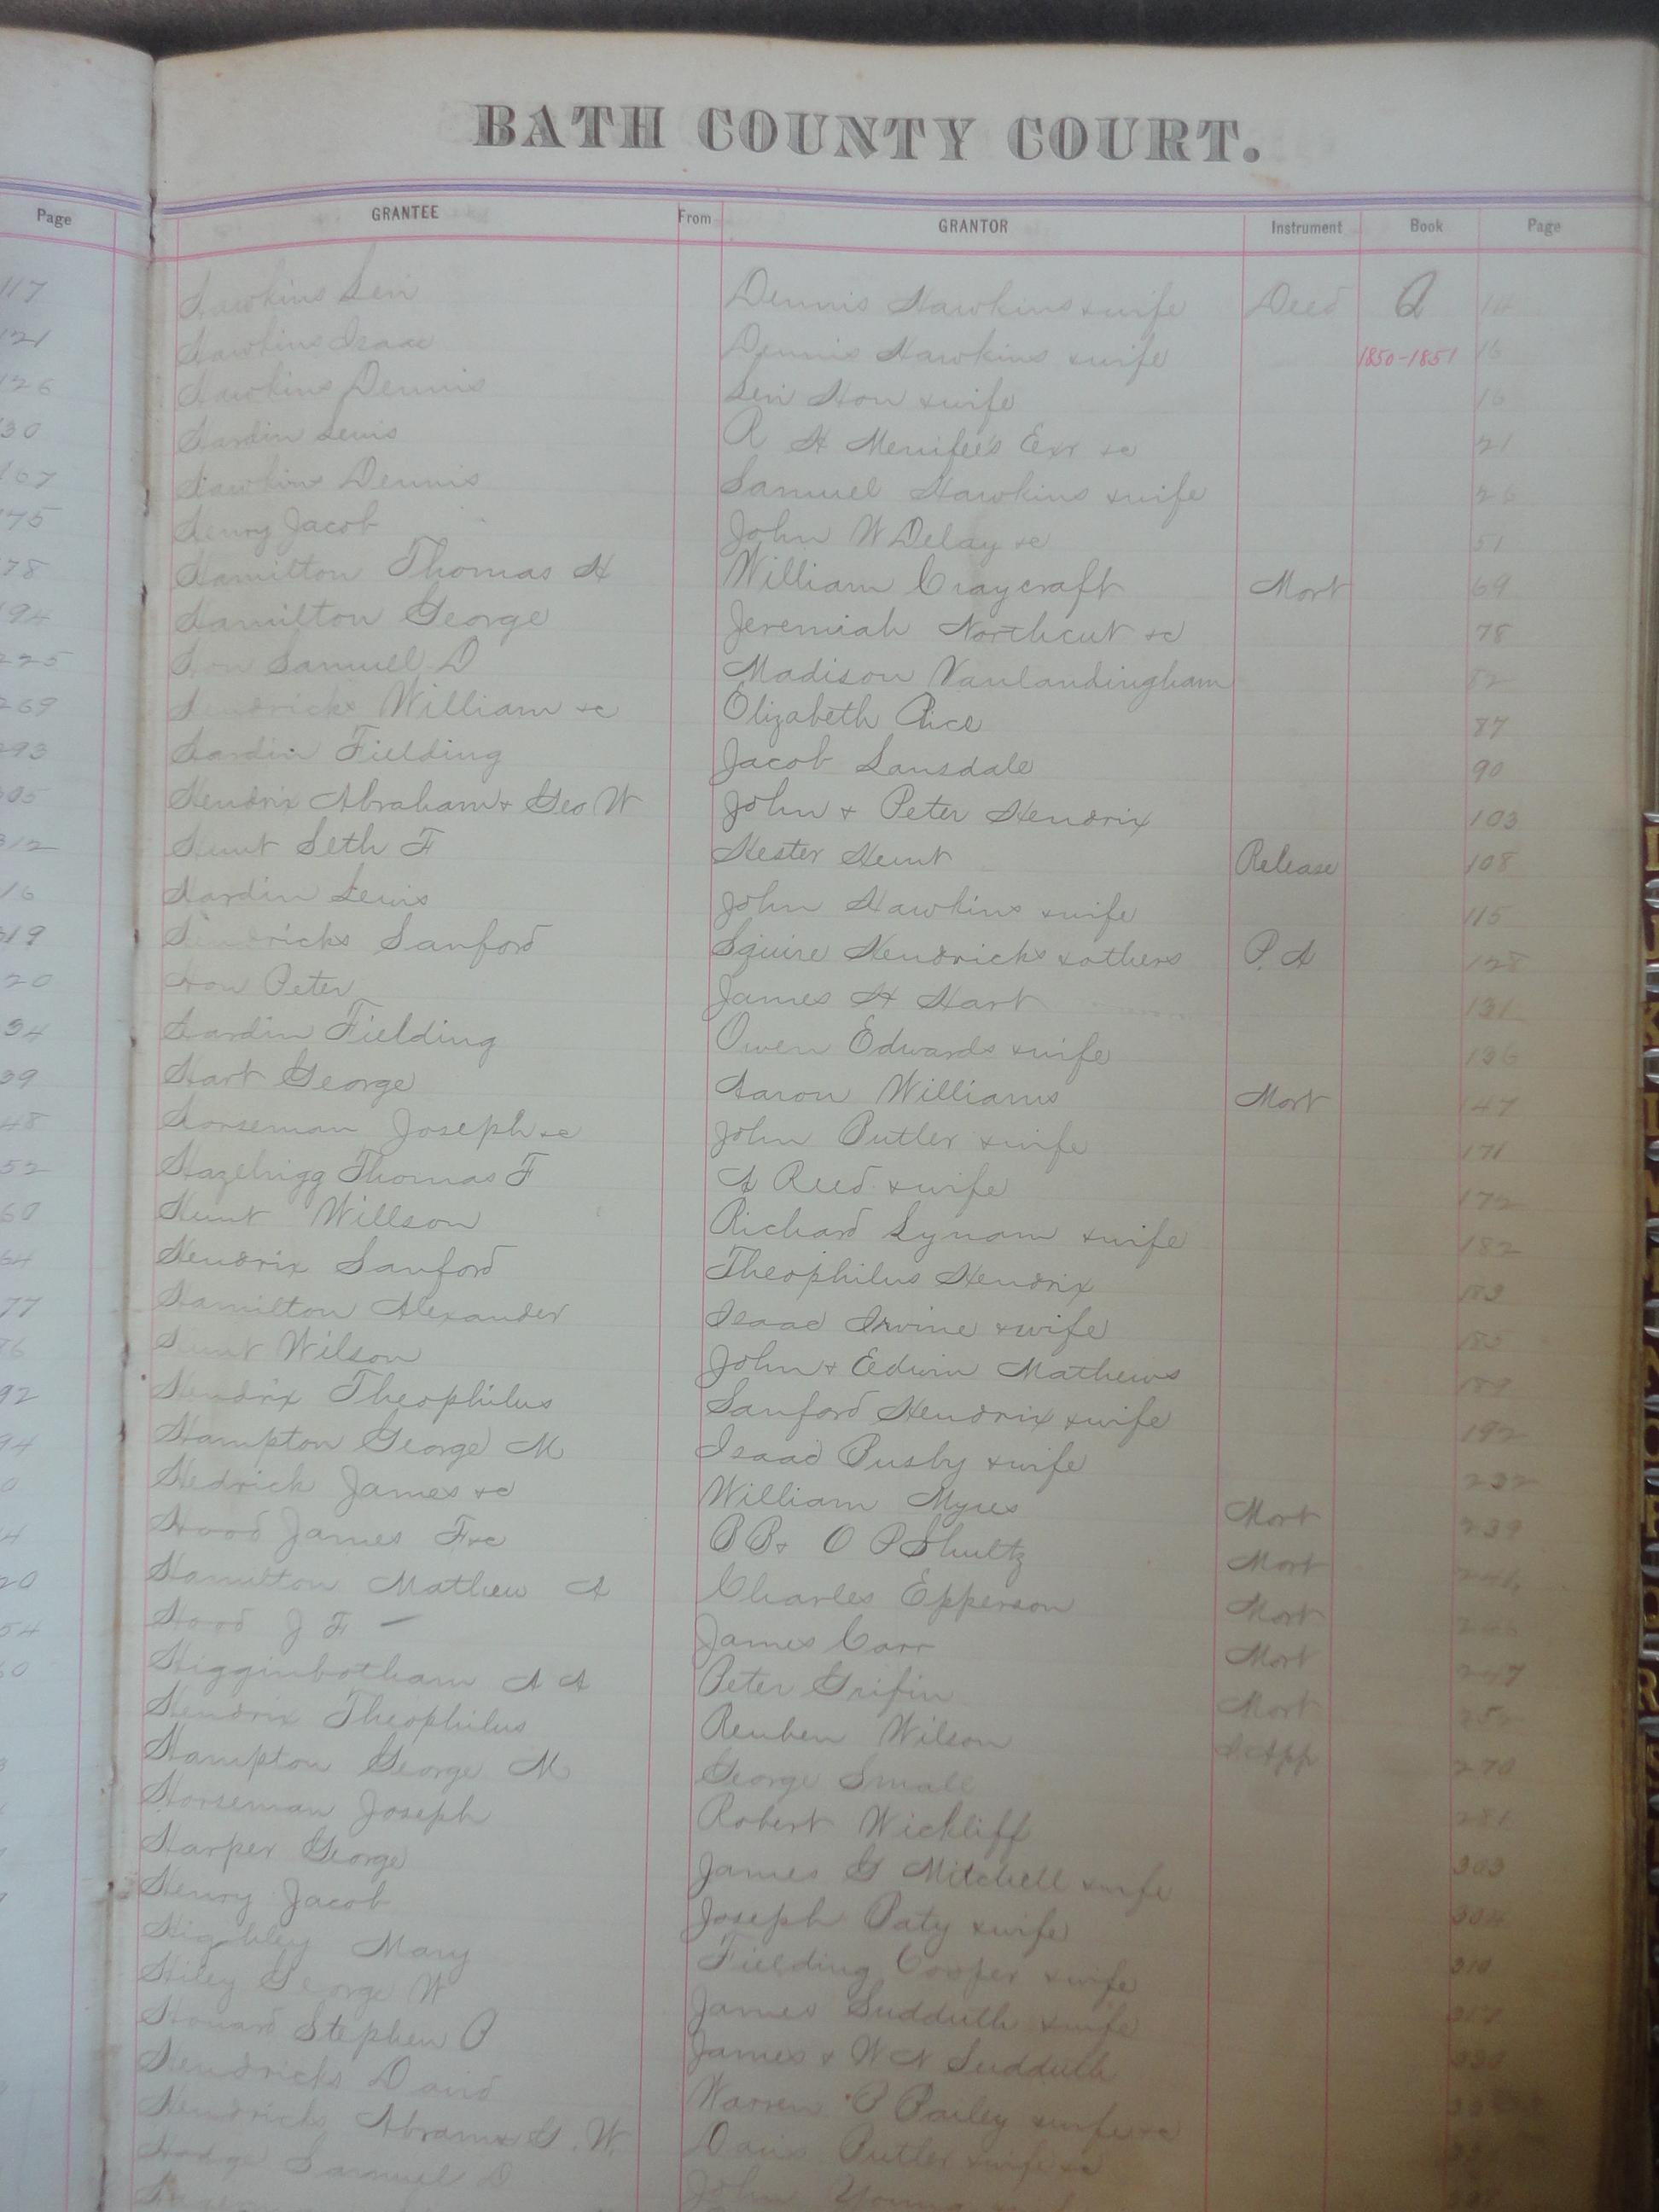 BATH COUNTY COURT.
Page GRANTEE From GRANTOR Instrument Book Page
117 Hawkins Levi Dennis Hawkins & wife Deed Q 14
121 Hawkins Isaac Dennis Hawkins & wife 1850-1851 16
126 Hawkins Dennis Levi Hon & wife 16
30 Hardin Lewis R H Menifee's Exr &c 21
167 Hawkins Dennis Samuel Hawkins & wife 26
175 Henry Jacob John W Delay &c 51
78 Hamilton Thomas H William Craycraft Mort 69
94 Hamilton George Jeremiah Northcut &c 78
225 Hon Samuel D Madison Vanlandingham 82
269 Hendricks William &c Elizabeth Rice 87
293 Hardin Fielding Jacob Lansdale 90
305 Hendrix Abraham & Geo W John & Peter Hendrix 103
312 Hunt Seth F Hester Hunt Release 108
16 Hardin Lewis John Hawkins & wife 115
319 Hendricks Sanford Squire Hendricks & others P. A 128
20 Hon Peter James H Hart 131
34 Hardin Fielding Owen Edwards & wife 136
39 Hart George Aaron Williams Mort 147
48 Horseman Joseph &c John Butler & wife 171
52 Hazelrigg Thomas F A Reed & wife 172
60 Hunt Willson Richard Lynam & wife 182
64 Hendrix Sanford Theophilus Hendrix 183
77 Hamilton Alexander Isaac Irvine & wife
Hunt Wilson John & Edwin Mathews 189
92 Hendrix Theophilus Sanford Hendrix & wife 192
94 Hampton George M Isaac Busby & wife 232
0 Hedrick James &c William Myers Mort 239
4 Hood James F &c B B & O P Shultz Mort
20 Hamilton Mathew A Charles Epperson Mort
54 Hood J F James Carr Mort 247
60 Higginbotham A A Peter Grifin Mort
Hendrix Theophilus Reuben Wilson 270
Hampton George M George Small 281
Horseman Joseph Robert Wickliff 303
Harper George James G Mitchell & wife 304
Henry Jacob Joseph Paty & wife 310
Highley Mary Fielding Cooper & wife
Hiley George W James Sudduth & wife
Howard Stephen P James & W N Sudduth
Hendricks David Warren P Bailey & wife &c
Hendricks Abram & G. W. Davis Butler & wife &c
Hodge Samuel D John Young